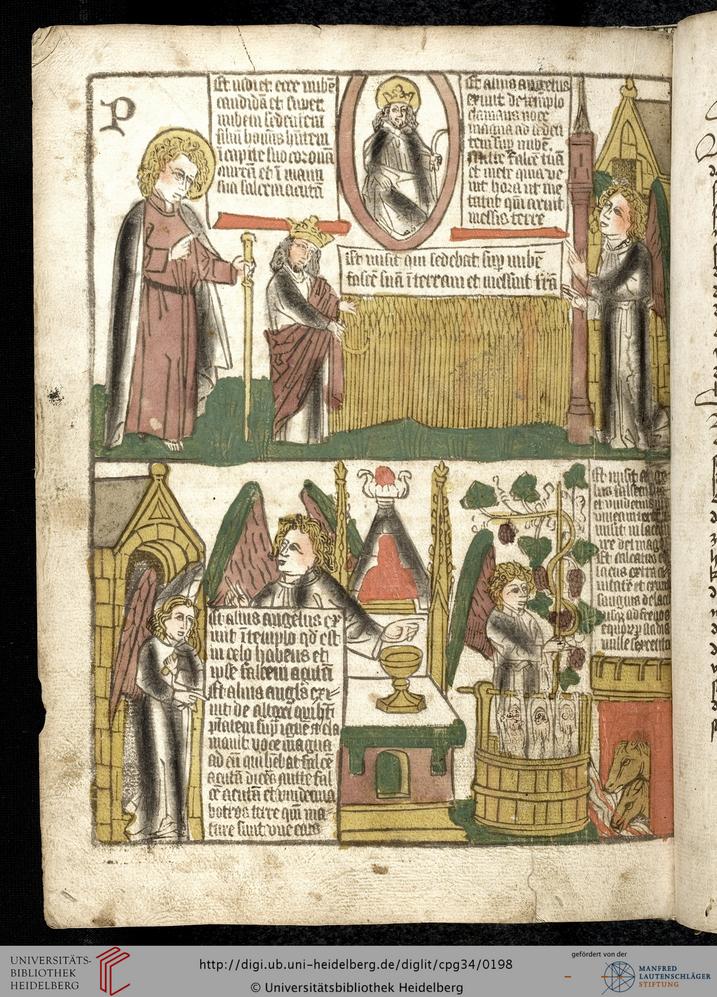 P
Et vidi et ecce nubē
candidā et super
nubem sedentem
filiū hominis hñtem
in capite suo coronā
aureā et ī manu
sua falcem acutā
Et alius angelus
exivit de templo
clamans voce
magna ad seden
tem sup nubē
mitte falcē tuā
et mete quia ve
nit hora ut me
tatur qm̄ aruit
messis terre
Et misit qui sedebat sup nubē
falcē suā ī terram et messuit t̄rā
Et alius angelus ex
ivit ī templo qd est
in celo habens et
ipse falcem acutā
Et alius angls exi
vit de altari qui hēt
ptatem sup ignē et cla
mavit voce magna
ad eū qui hēbat falcē
acutā dicēs mitte fal
cē acutā et vindemia
botros terre qm̄ ma
ture sunt uve eius
Et misit
falcem
et vindemi
vineam
misit in lacū
ire dei mag
Et calcatus
lacus extra ci
vitatē et exivit
sanguis de lacu
usq ad frenos
equor p stadia
mille sexcenta
UNIVERSITÄTS-
BIBLIOTHEK
HEIDELBERG
http://digi.ub.uni-heidelberg.de/diglit/cpg34/0198
© Universitätsbibliothek Heidelberg
gefördert von der
MANFRED
LAUTENSCHLÄGER
STIFTUNG